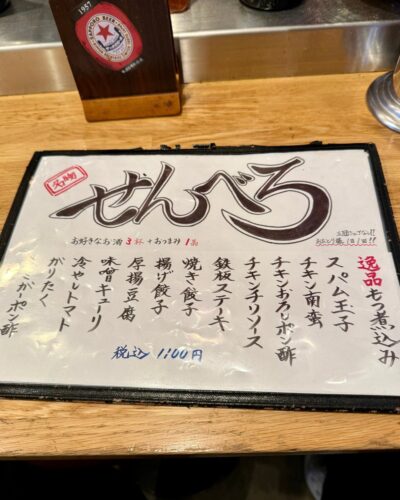 1957
SAPPORO BEER
名物
せんべろ
お好きなお酒3杯+おつまみ1品
お1人様1回!!
逸品もつ煮込み
スパム玉子
チキン南蛮
チキンおろしポン酢
チキンチリソース
鉄板ステーキ
焼き餃子
揚げ餃子
厚揚豆腐
味噌キューリ
冷やしトマト
がりたく
さがーポン酢
税込 1100円